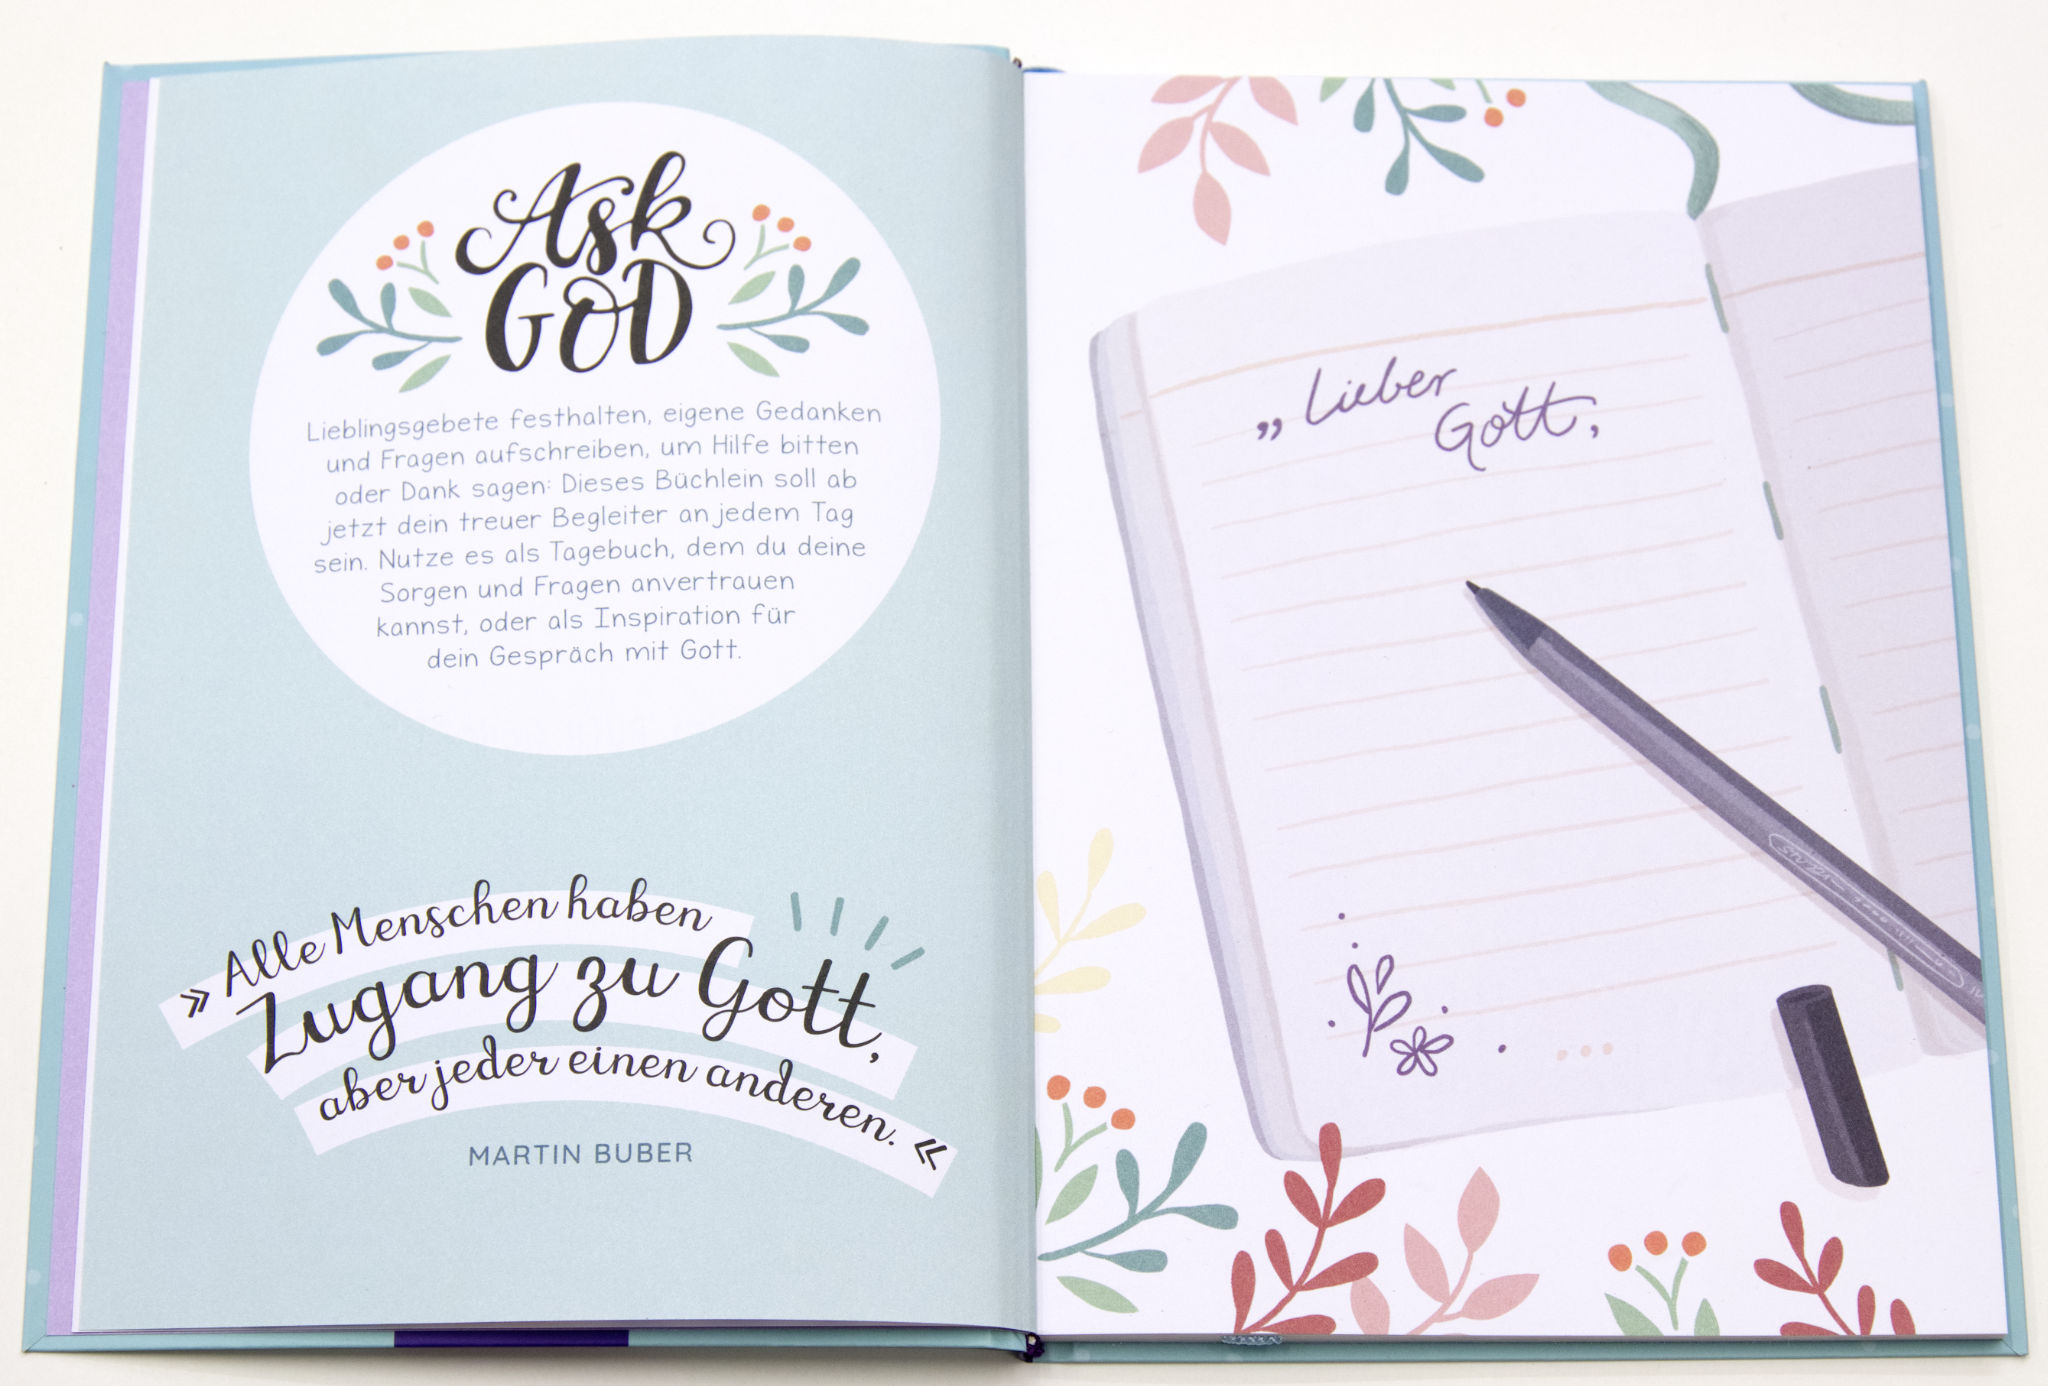 Ask
GOD
Lieblingsgebete festhalten, eigene Gedanken
und Fragen aufschreiben, um Hilfe bitten
oder Dank sagen: Dieses Büchlein soll ab
jetzt dein treuer Begleiter an jedem Tag
sein. Nutze es als Tagebuch, dem du deine
Sorgen und Fragen anvertrauen
kannst, oder als Inspiration für
dein Gespräch mit Gott.
»Alle Menschen haben
Zugang zu Gott,
aber jeder einen anderen.«
MARTIN BUBER
„Lieber
Gott,